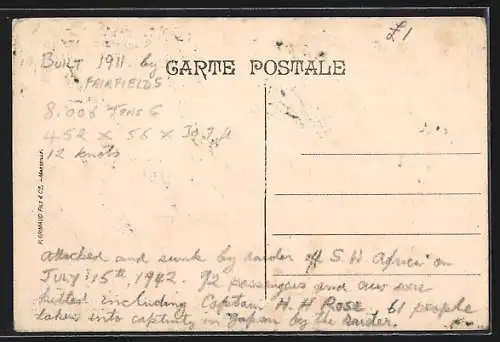 £1
BUILT 1911 by
FAIRFIELDS
CARTE POSTALE
8.006 TONS G
452 x 56 x
12 knots
attacked and sunk by raider off S. W Africa on
JULY 15th, 1942. 92 passengers and crew were
killed including Captain H. H Rose. 61 people
taken into captivity in Japan by the raider.